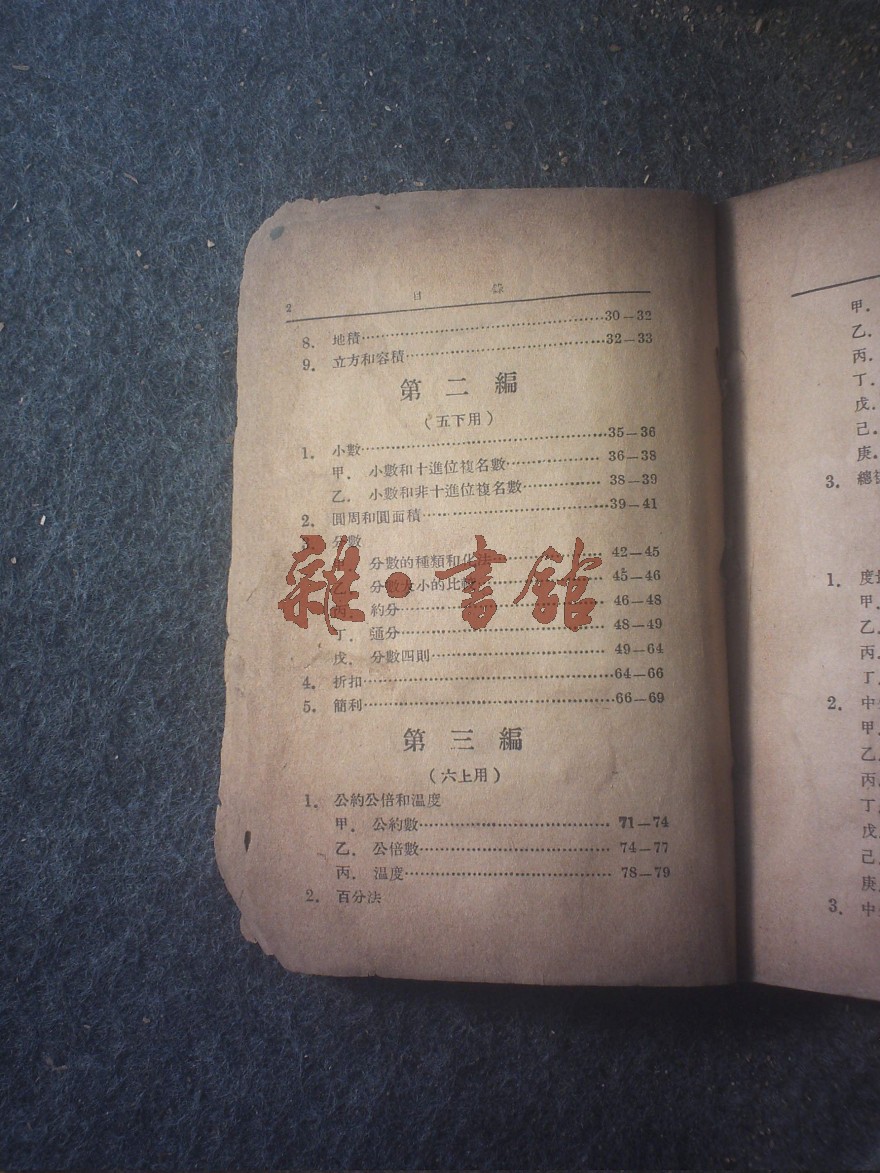 2 目 錄
8. 地積……30—32
9. 立方和容積……32—33
第二編
（五下用）
1. 小數……35—36
甲. 小數和十進位複名數……36—38
乙. 小數和非十進位複名數……38—39
2. 圓周和圓面積……39—41
3. 分數
甲. 分數的種類和化法……42—45
乙. 分數大小的比較……45—46
丙. 約分……46—48
丁. 通分……48—49
戊. 分數四則……49—64
4. 折扣……64—66
5. 簡利……66—69
第三編
（六上用）
1. 公約公倍和温度
甲. 公約數……71—74
乙. 公倍數……74—77
丙. 温度……78—79
2. 百分法
雜·書館
甲.
乙.
丙.
丁.
戊.
己.
庚.
3. 總
1. 度
甲.
乙.
丙.
丁.
2. 中
甲.
乙.
丙.
丁.
戊.
己.
庚.
3. 中